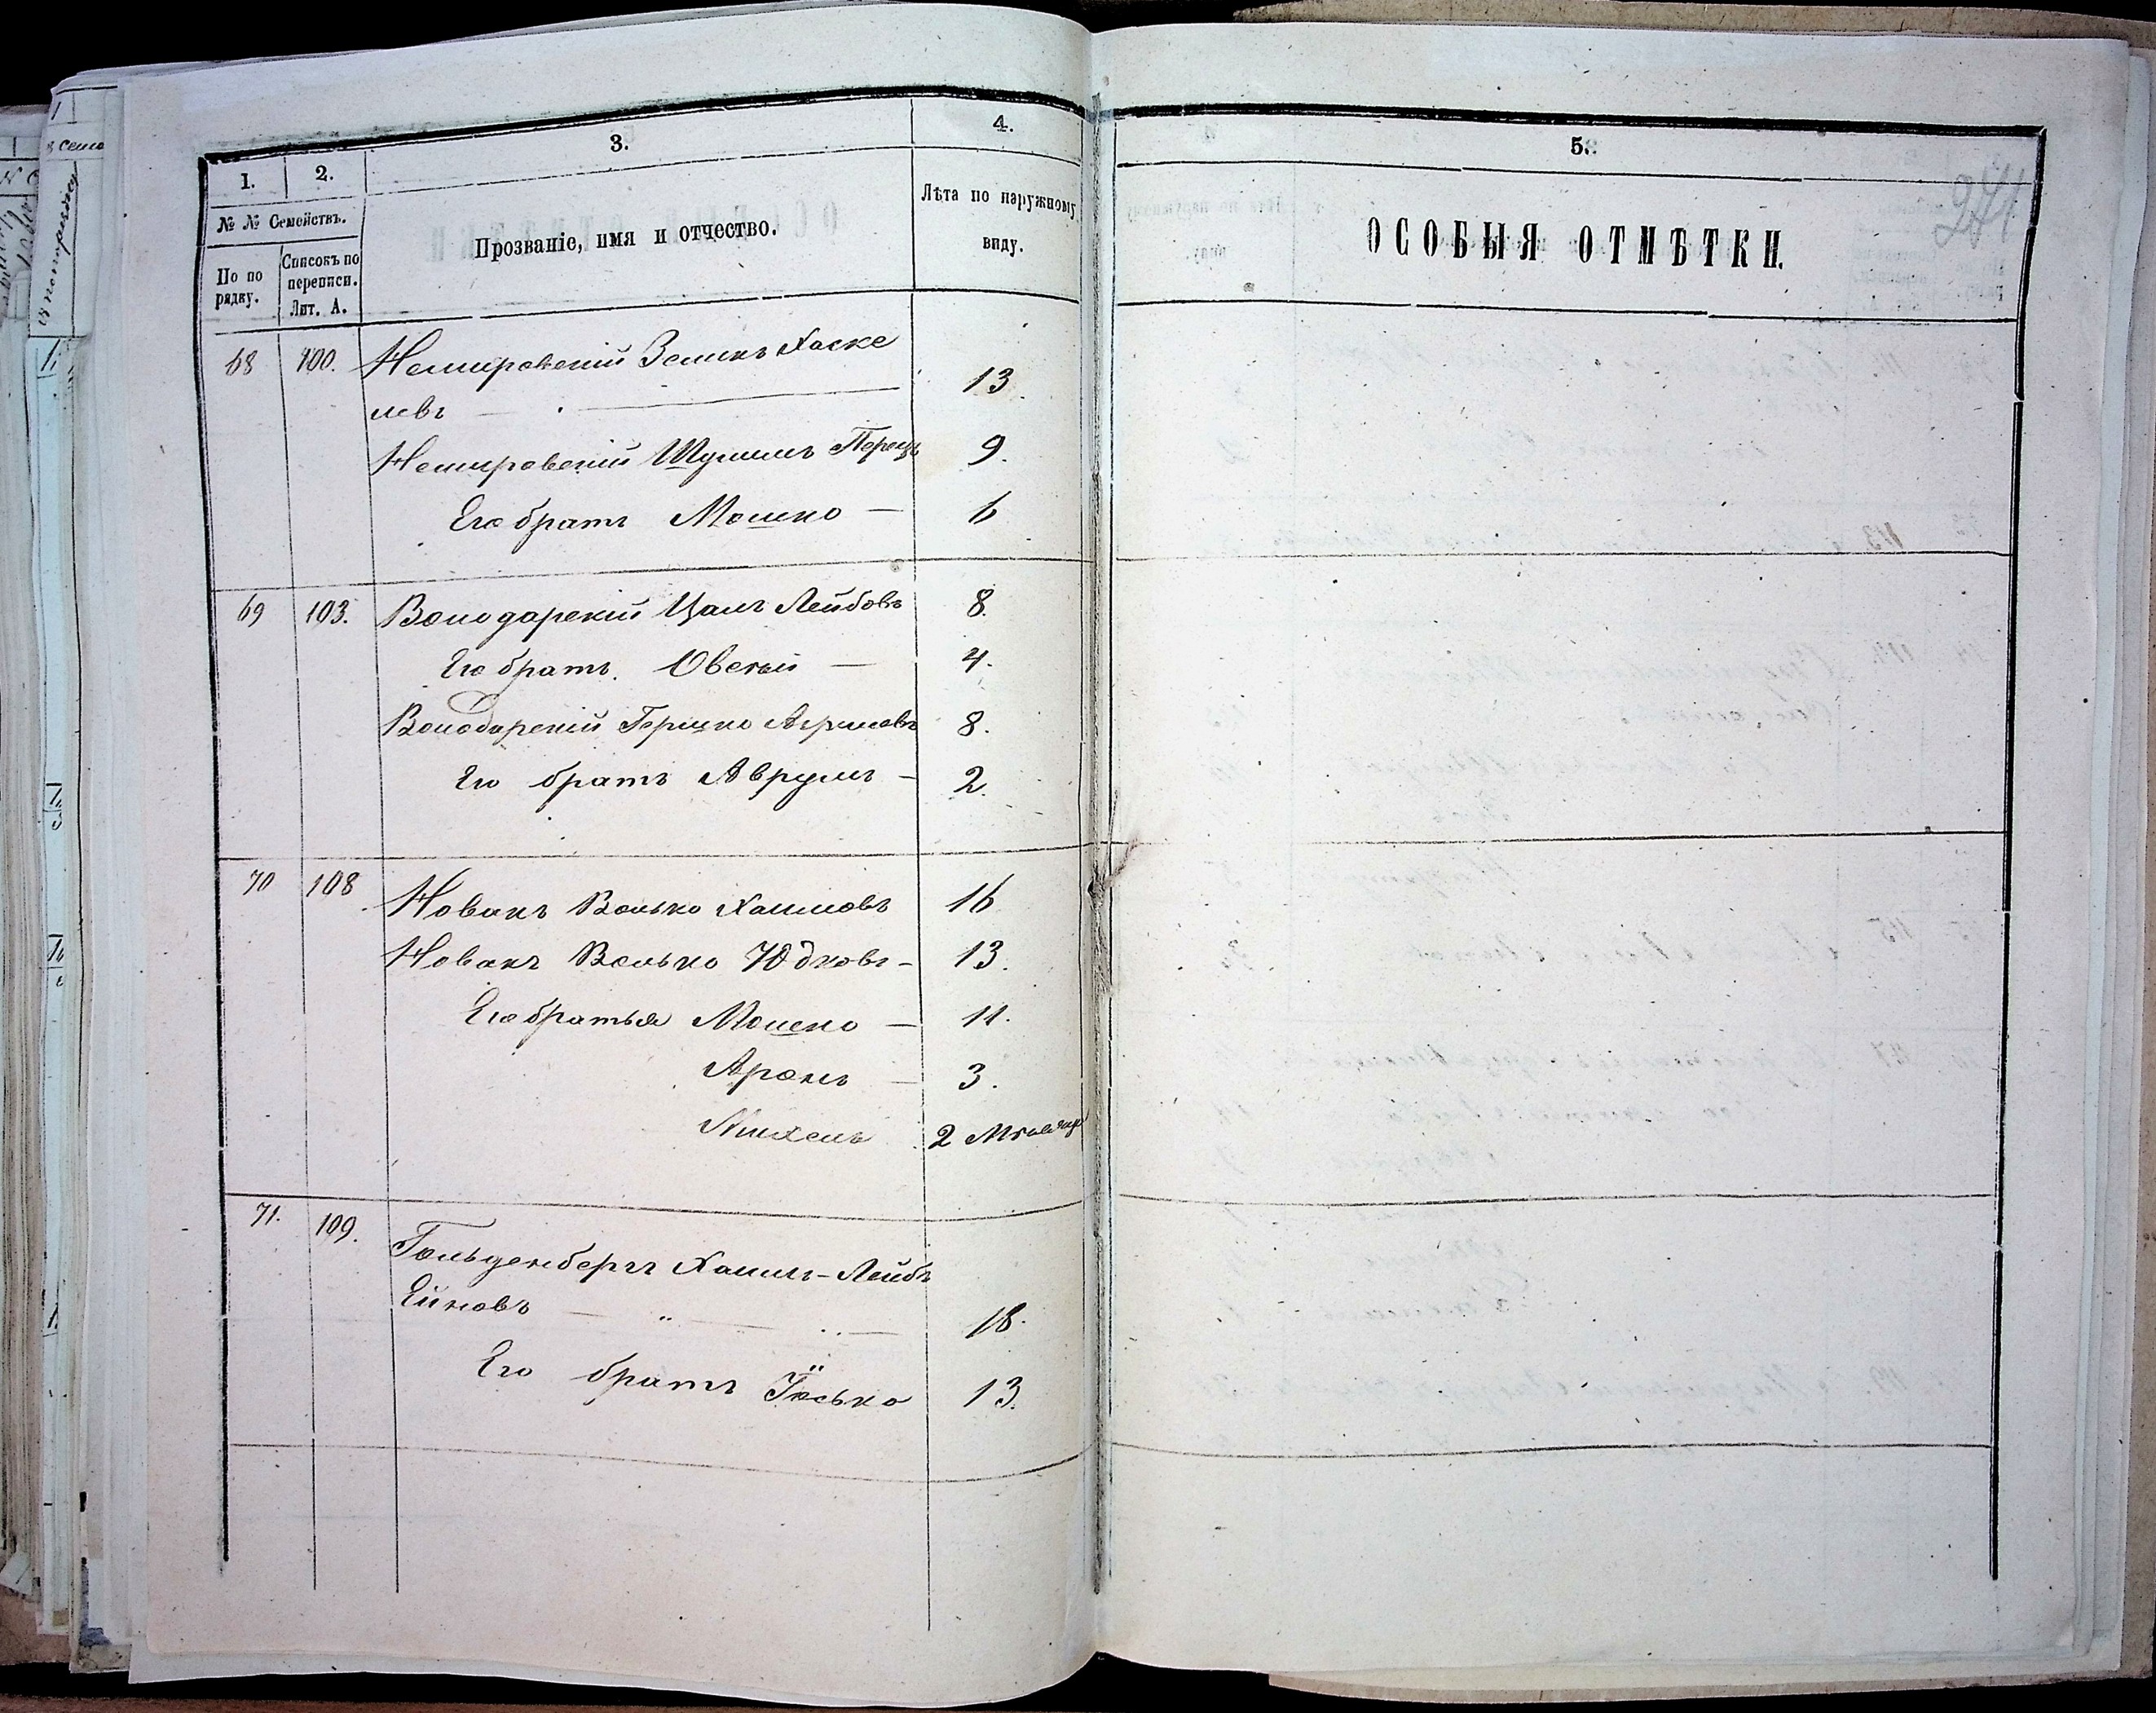 1.
2.
3.
4.
5.
№ № Семействъ.
По порядку.
Списокъ по переписи. Лит. А.
Прозваніе, имя и отчество.
Лѣта по наружному виду.
ОСОБЫЯ ОТМѢТКИ.
271
68 100. Немировскій Зельикъ Хаске
левъ — 13.
Немировскій Шулимъ Перец 9.
Его братъ Мошко — 6
69 103. Володарскій Цаль Лейбовъ 8.
Его братъ Овстій — 4.
Володарскій Гершко Агрумовъ 8.
Его братъ Аврумъ — 2.
70 108 Новакъ Волько Хаимовъ 16
Новакъ Волько Юдковъ — 13.
Его братья Мошко — 11.
Аронъ — 3.
Михель 2
71. 109. Гольденбергъ Хаимъ-Лейбъ
Ейновъ — 18.
Его братъ Іосько 13.